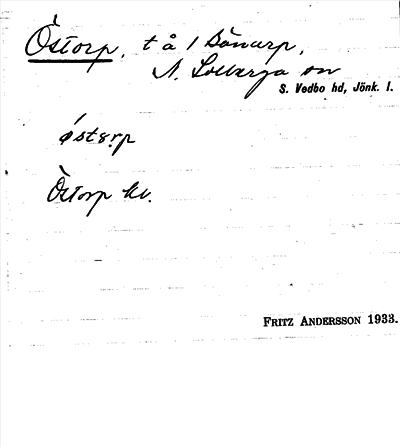 Östorp, t å 1 Dönarp,
N. Solberga sn
S. Vedbo hd, Jönk. l.
Östorp kv.
FRITZ ANDERSSON 1933.